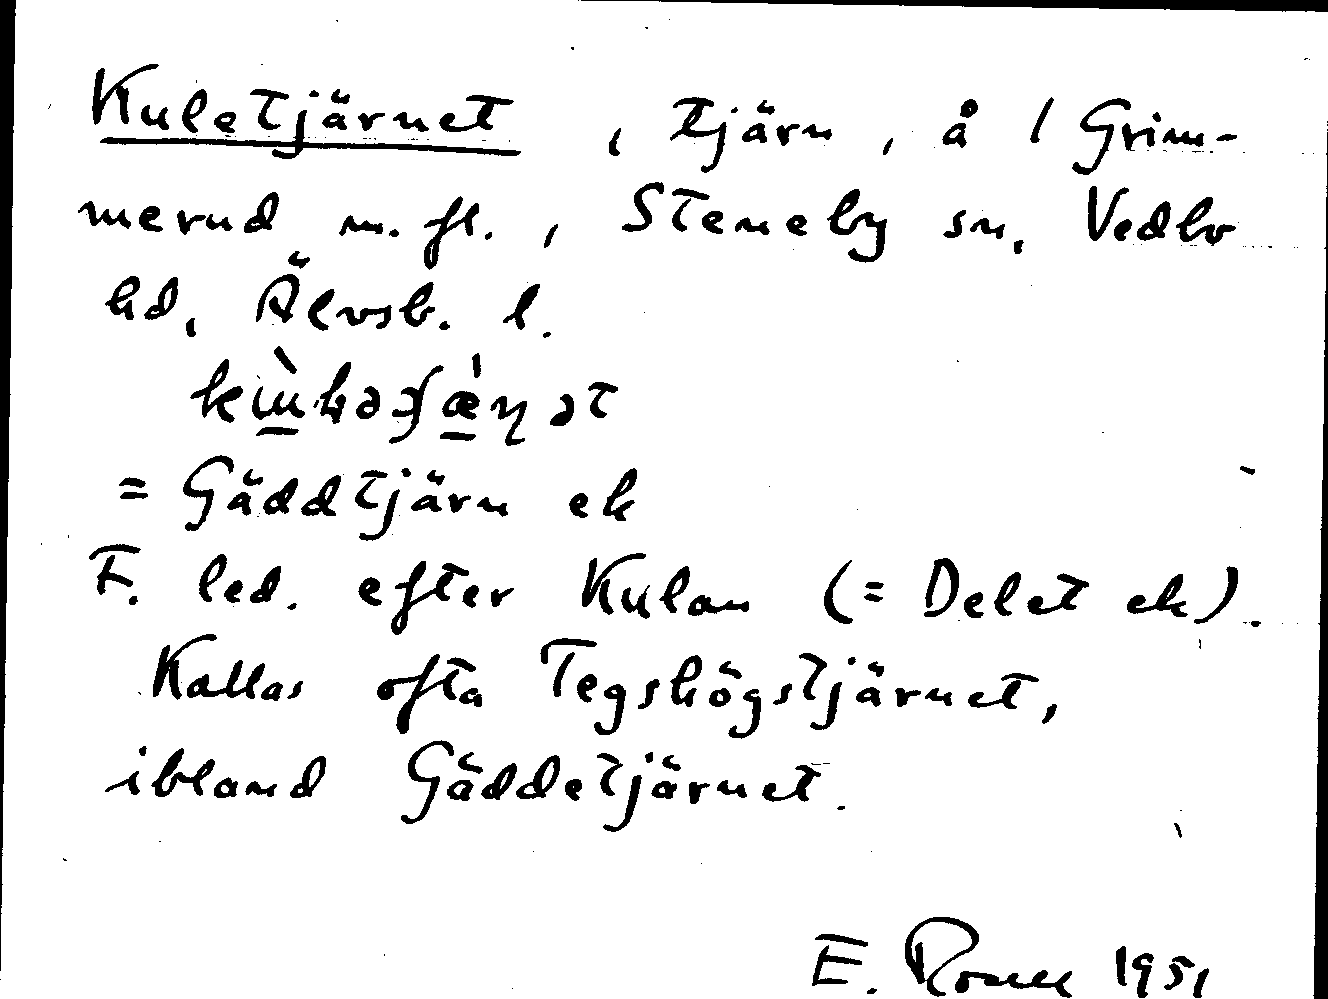 Kuletjärnet, tjärn, å 1 Grim-
merud m.fl., Steneby sn, Vedbo
hd, Älvsb. l.
= Gäddtjärn ek
F. led. efter Kulan (= Delet ek).
Kallas ofta Tegshögstjärnet,
ibland Gäddetjärnet.
E. 1951